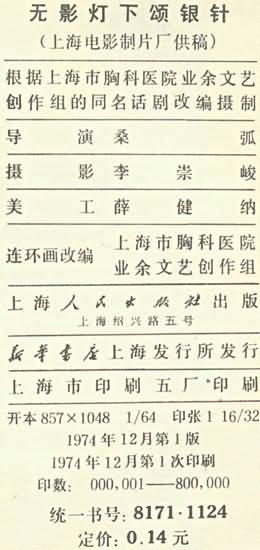 无影灯下颂银针
（上海电影制片厂供稿）
根据上海市胸科医院业余文艺
创作组的同名话剧改编摄制
导 演 桑 弧
摄 影 李 崇 峻
美 工 薛 健 纳
连环画改编 上海市胸科医院
业余文艺创作组
上海人民出版社出版
上海绍兴路五号
新华书店上海发行所发行
上海市印刷五厂印刷
开本 857×1048 1/64 印张 1 16/32
1974年12月第1版
1974年12月第1次印刷
印数：000,001——800,000
统一书号：8171·1124
定价：0.14元